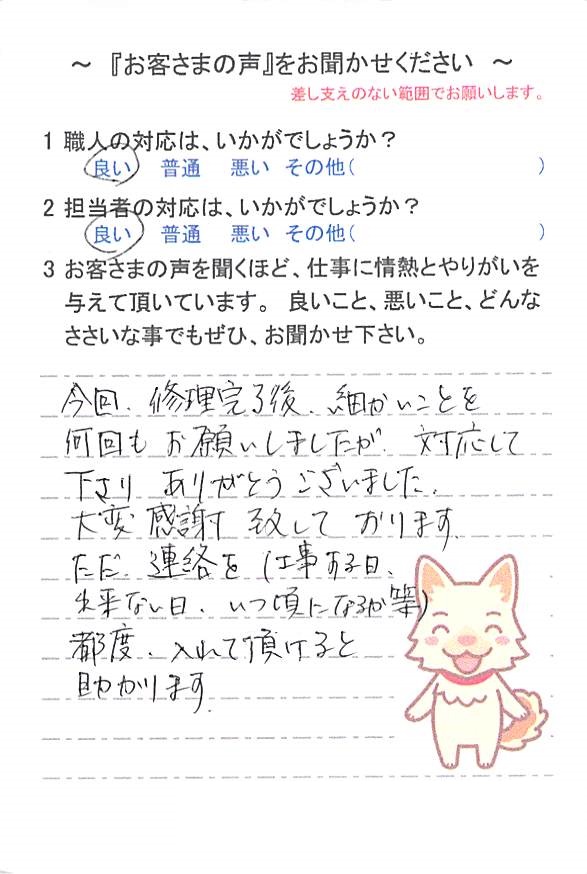 ～ 『お客さまの声』をお聞かせください ～
差し支えのない範囲でお願いします。
1 職人の対応は、いかがでしょうか？
良い 普通 悪い その他( )
2 担当者の対応は、いかがでしょうか？
良い 普通 悪い その他( )
3 お客さまの声を聞くほど、仕事に情熱とやりがいを
与えて頂いています。 良いこと、悪いこと、どんな
ささいな事でもぜひ、お聞かせ下さい。
今回、修理完了後、細かいことを
何回も お願いしましたが、対応して
下さり ありがとうございました。
大変 感謝 致して おります。
ただ、連絡を (仕事ある日、
出来ない日、いつ頃になるか等)
都度、入れて頂けると
助かります。